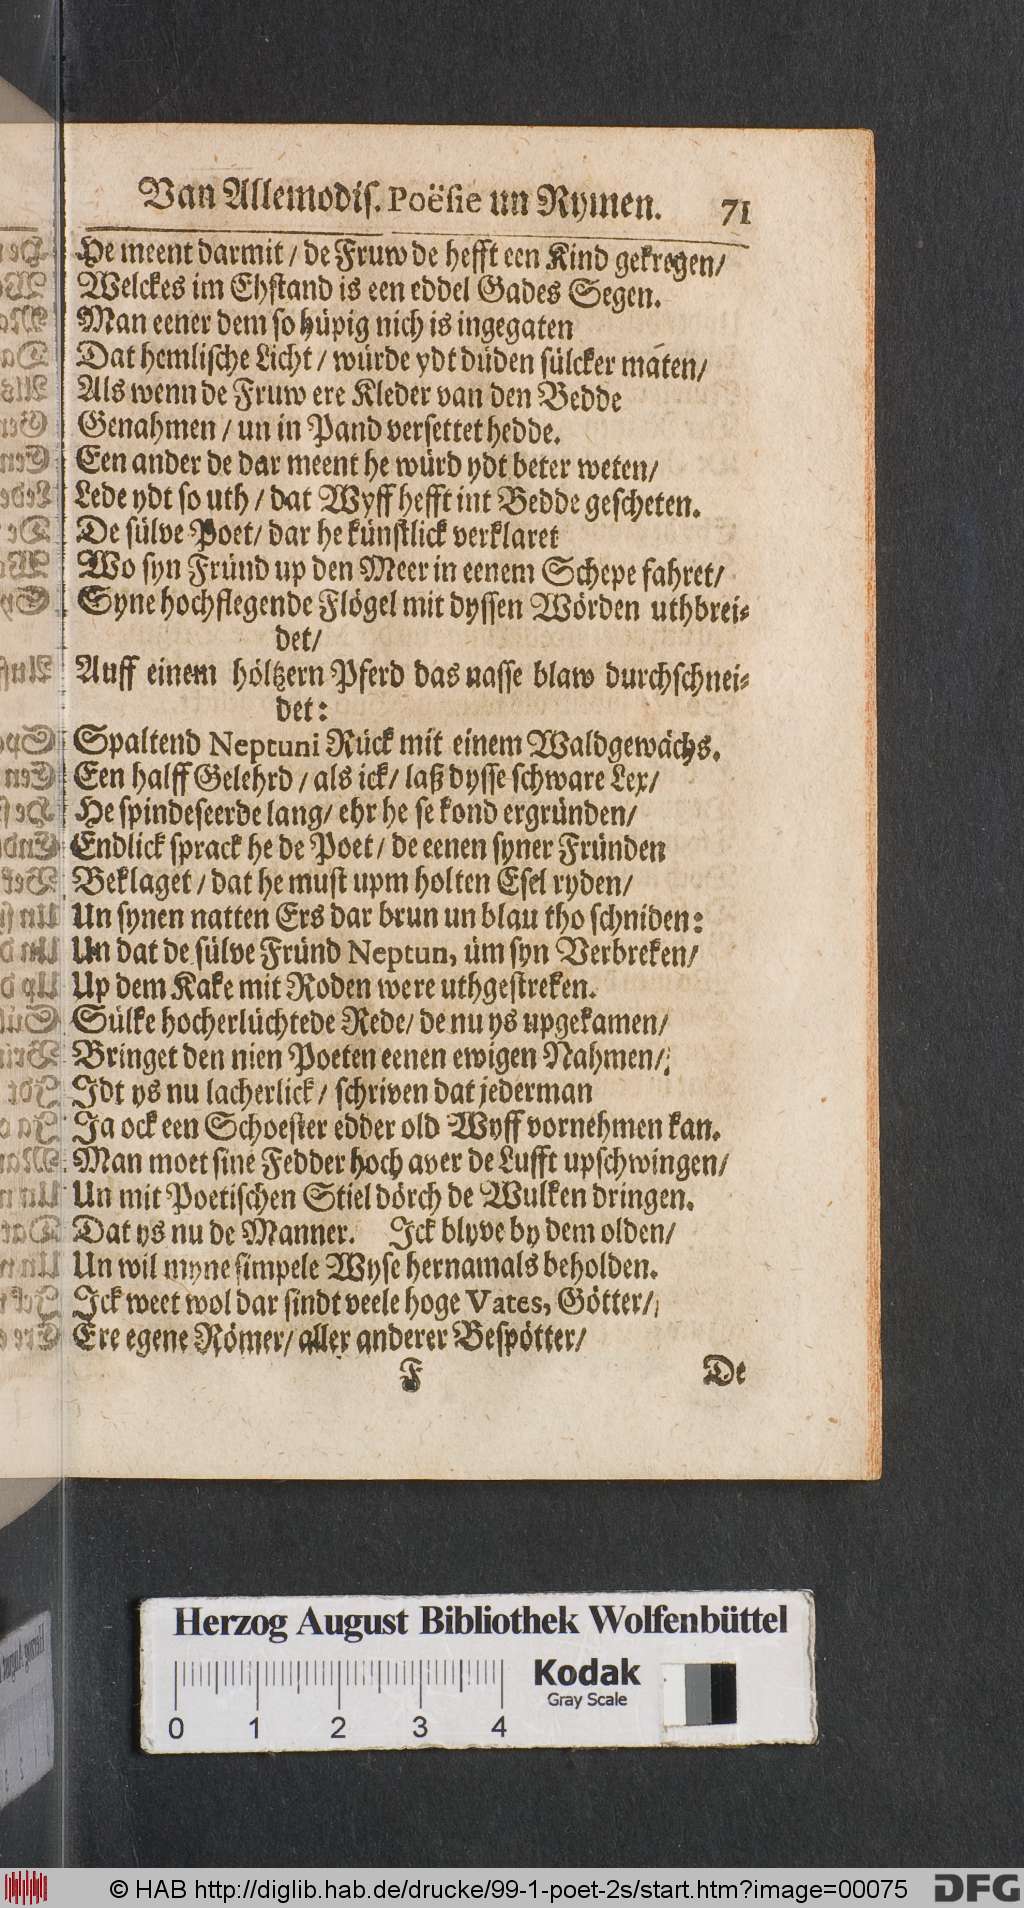 Van Allemodis. Poësie un Rymen. 71
He meent darmit / de Fruw de hefft een Kind gekregen /
Welckes im Ehstand is een eddel Gades Segen.
Man eener dem so hüpig nich is ingegaten
Dat hemlische Licht / würde ydt düden sülcker māten /
Als wenn de Fruw ere Kleder van den Bedde
Genahmen / un in Pand versettet hedde.
Een ander de dar meent he würd ydt beter weten /
Lede ydt so uth / dat Wyff hefft int Bedde gescheten.
De sülve Poet / dar he künstlick verklaret
Wo syn Fründ up den Meer in eenem Schepe fahret /
Syne hochflegende Flögel mit dyssen Wörden uthbrei-
det /
Auff einem höltzern Pferd das nasse blaw durchschnei-
det:
Spaltend Neptuni Rück mit einem Waldgewächs.
Een halff Gelehrd / als ick / laß dysse schware Lex /
He spindeseerde lang / ehr he se kond ergründen /
Endlick sprack he de Poet / de eenen syner Fründen
Beklaget / dat he must upm holten Esel ryden /
Un synen natten Ers dar brun un blau tho schniden:
Un dat de sülve Fründ Neptun, üm syn Verbreken /
Up dem Kake mit Roden were uthgestreken.
Sülke hocherlüchtede Rede / de nu ys upgekamen /
Bringet den nien Poeten eenen ewigen Nahmen /
Idt ys nu lacherlick / schriven dat jederman
Ja ock een Schoester edder old Wyff vornehmen kan.
Man moet sine Fedder hoch aver de Lufft upschwingen /
Un mit Poetischen Stiel dörch de Wulken dringen.
Dat ys nu de Manner. Ick blyve by dem olden /
Un wil myne simpele Wyse hernamals beholden.
Ick weet wol dar sindt veele hoge Vates, Götter /
Ere egene Römer / aller anderer Bespötter /
F De
Herzog August Bibliothek Wolfenbüttel
Kodak
Gray Scale
0 1 2 3 4
© HAB http://diglib.hab.de/drucke/99-1-poet-2s/start.htm?image=00075
DFG